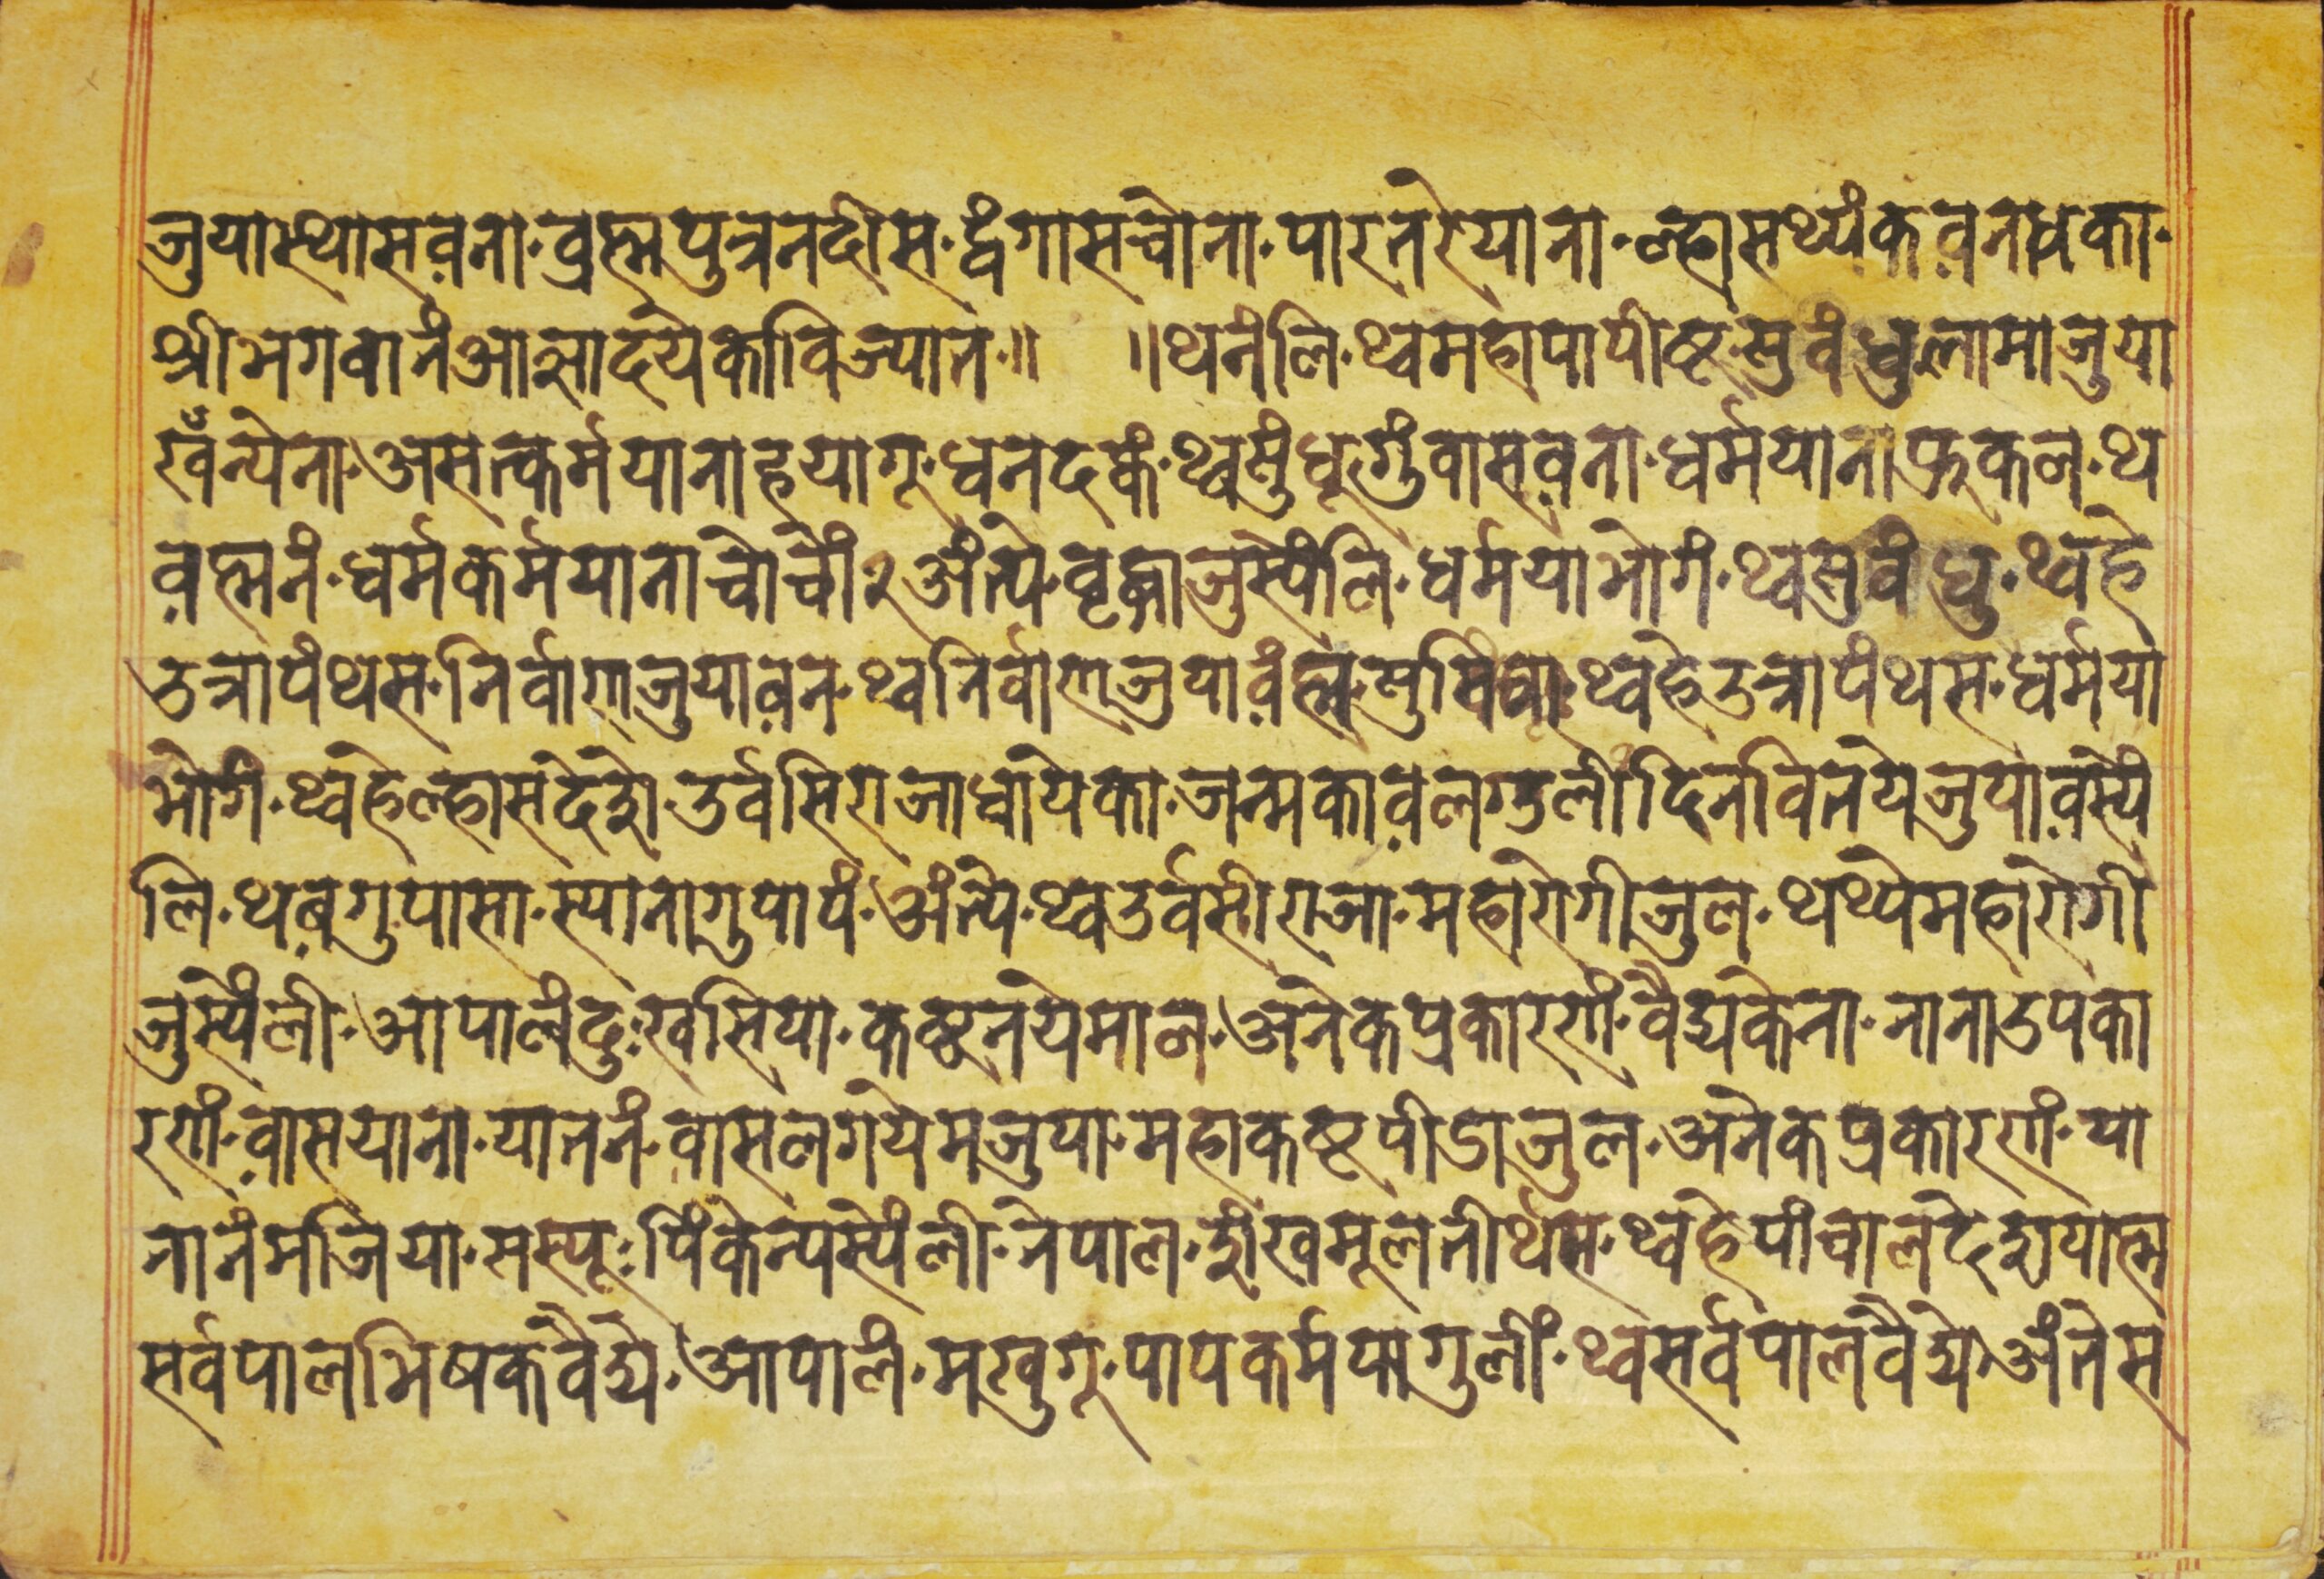 जुयास्थासव़ना·व्रह्मपुत्रनदीस·द्वंगासचोना·पारतरेयाना·ल्हासथ्यंकव़नधका·
श्रीभगवानंआज्ञादयेकाविज्यात·॥ ॥थनंलि·थ्वमहापापीष्ट·सुवंधुलामाजुया
खँन्येना·असत्कर्मयानाहयागू·धनदक्वं·थ्वसुंधूगुंवासव़ना·धर्मयानाफुकल·थ
व़ह्मनं·धर्मकर्मयानाचोचों२अंत्ये·वृह्माजुस्येंलि·धर्मयाभोगं·थ्वसुवंधु·थ्वहे
उत्रापंथस·निर्वाणजुयाव़न·थ्वनिर्वाणजुयाव़ंह्म·सुमिंवा·थ्वहेउत्रापंथस·धर्मया
भोगं·थ्वहेल्हासंदेशे·उर्वसिराजाधायेका·जन्मकाव़लगुलीदिनवितयेजुयाव़स्यें
लि·थव़गुपासा·स्यानागुपापं·अंत्ये·थ्वउर्वसीराजा·महारोगीजुल·थथ्येमहारोगी
जुस्येंली·आपालंदुःखसिया·कष्टनयेमाल·अनेकप्रकारणं·वैद्यकेना·नानाउपका
रणं·व़ासयाना·यातनं·वासलगयेमजुया·महाकष्टपीडाजुल·अनेकप्रकारणं·या
नानंमजिया·सस्यूःपिंकेन्यस्येंली·नेपाल·शंखमूलतीर्थस·थ्वहेपांचालदेशयाह्म
सर्वपालभिषकवैद्ये·आपालं·मखुगू·पापकर्मयागुलीं·थ्वसर्वपालवैद्ये·अंतेस